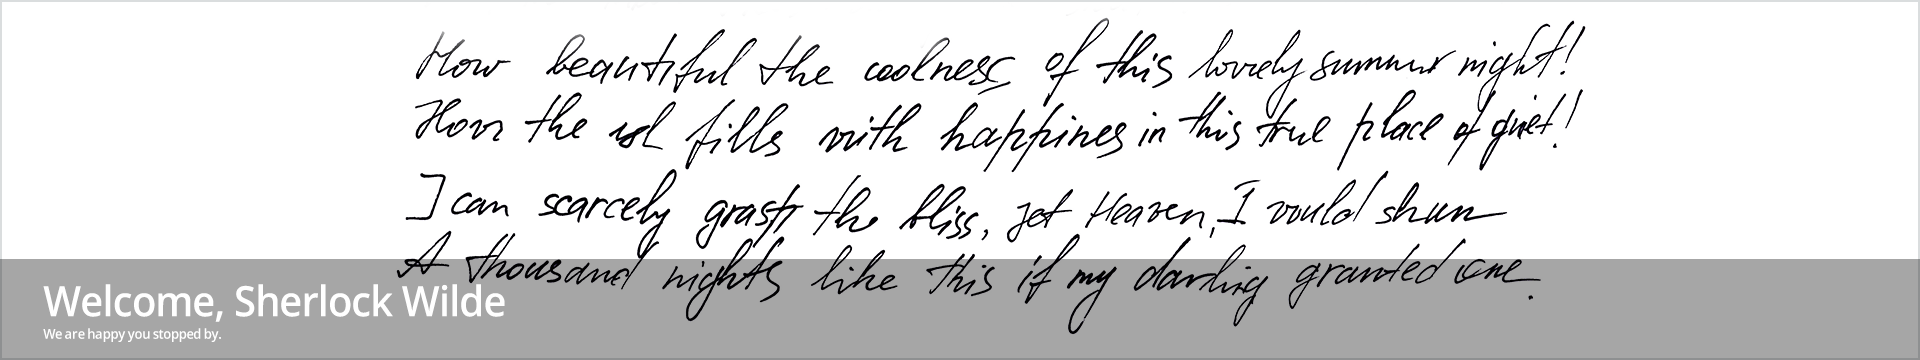 How beautiful the coolness of this lovely summer night!
How the fills with happines in this true place of quiet!
I can scarcely grasp the bliss, yet Heaven, I would shun
A thousand nights like this if my darling granted one.
Welcome, Sherlock Wilde
We are happy you stopped by.